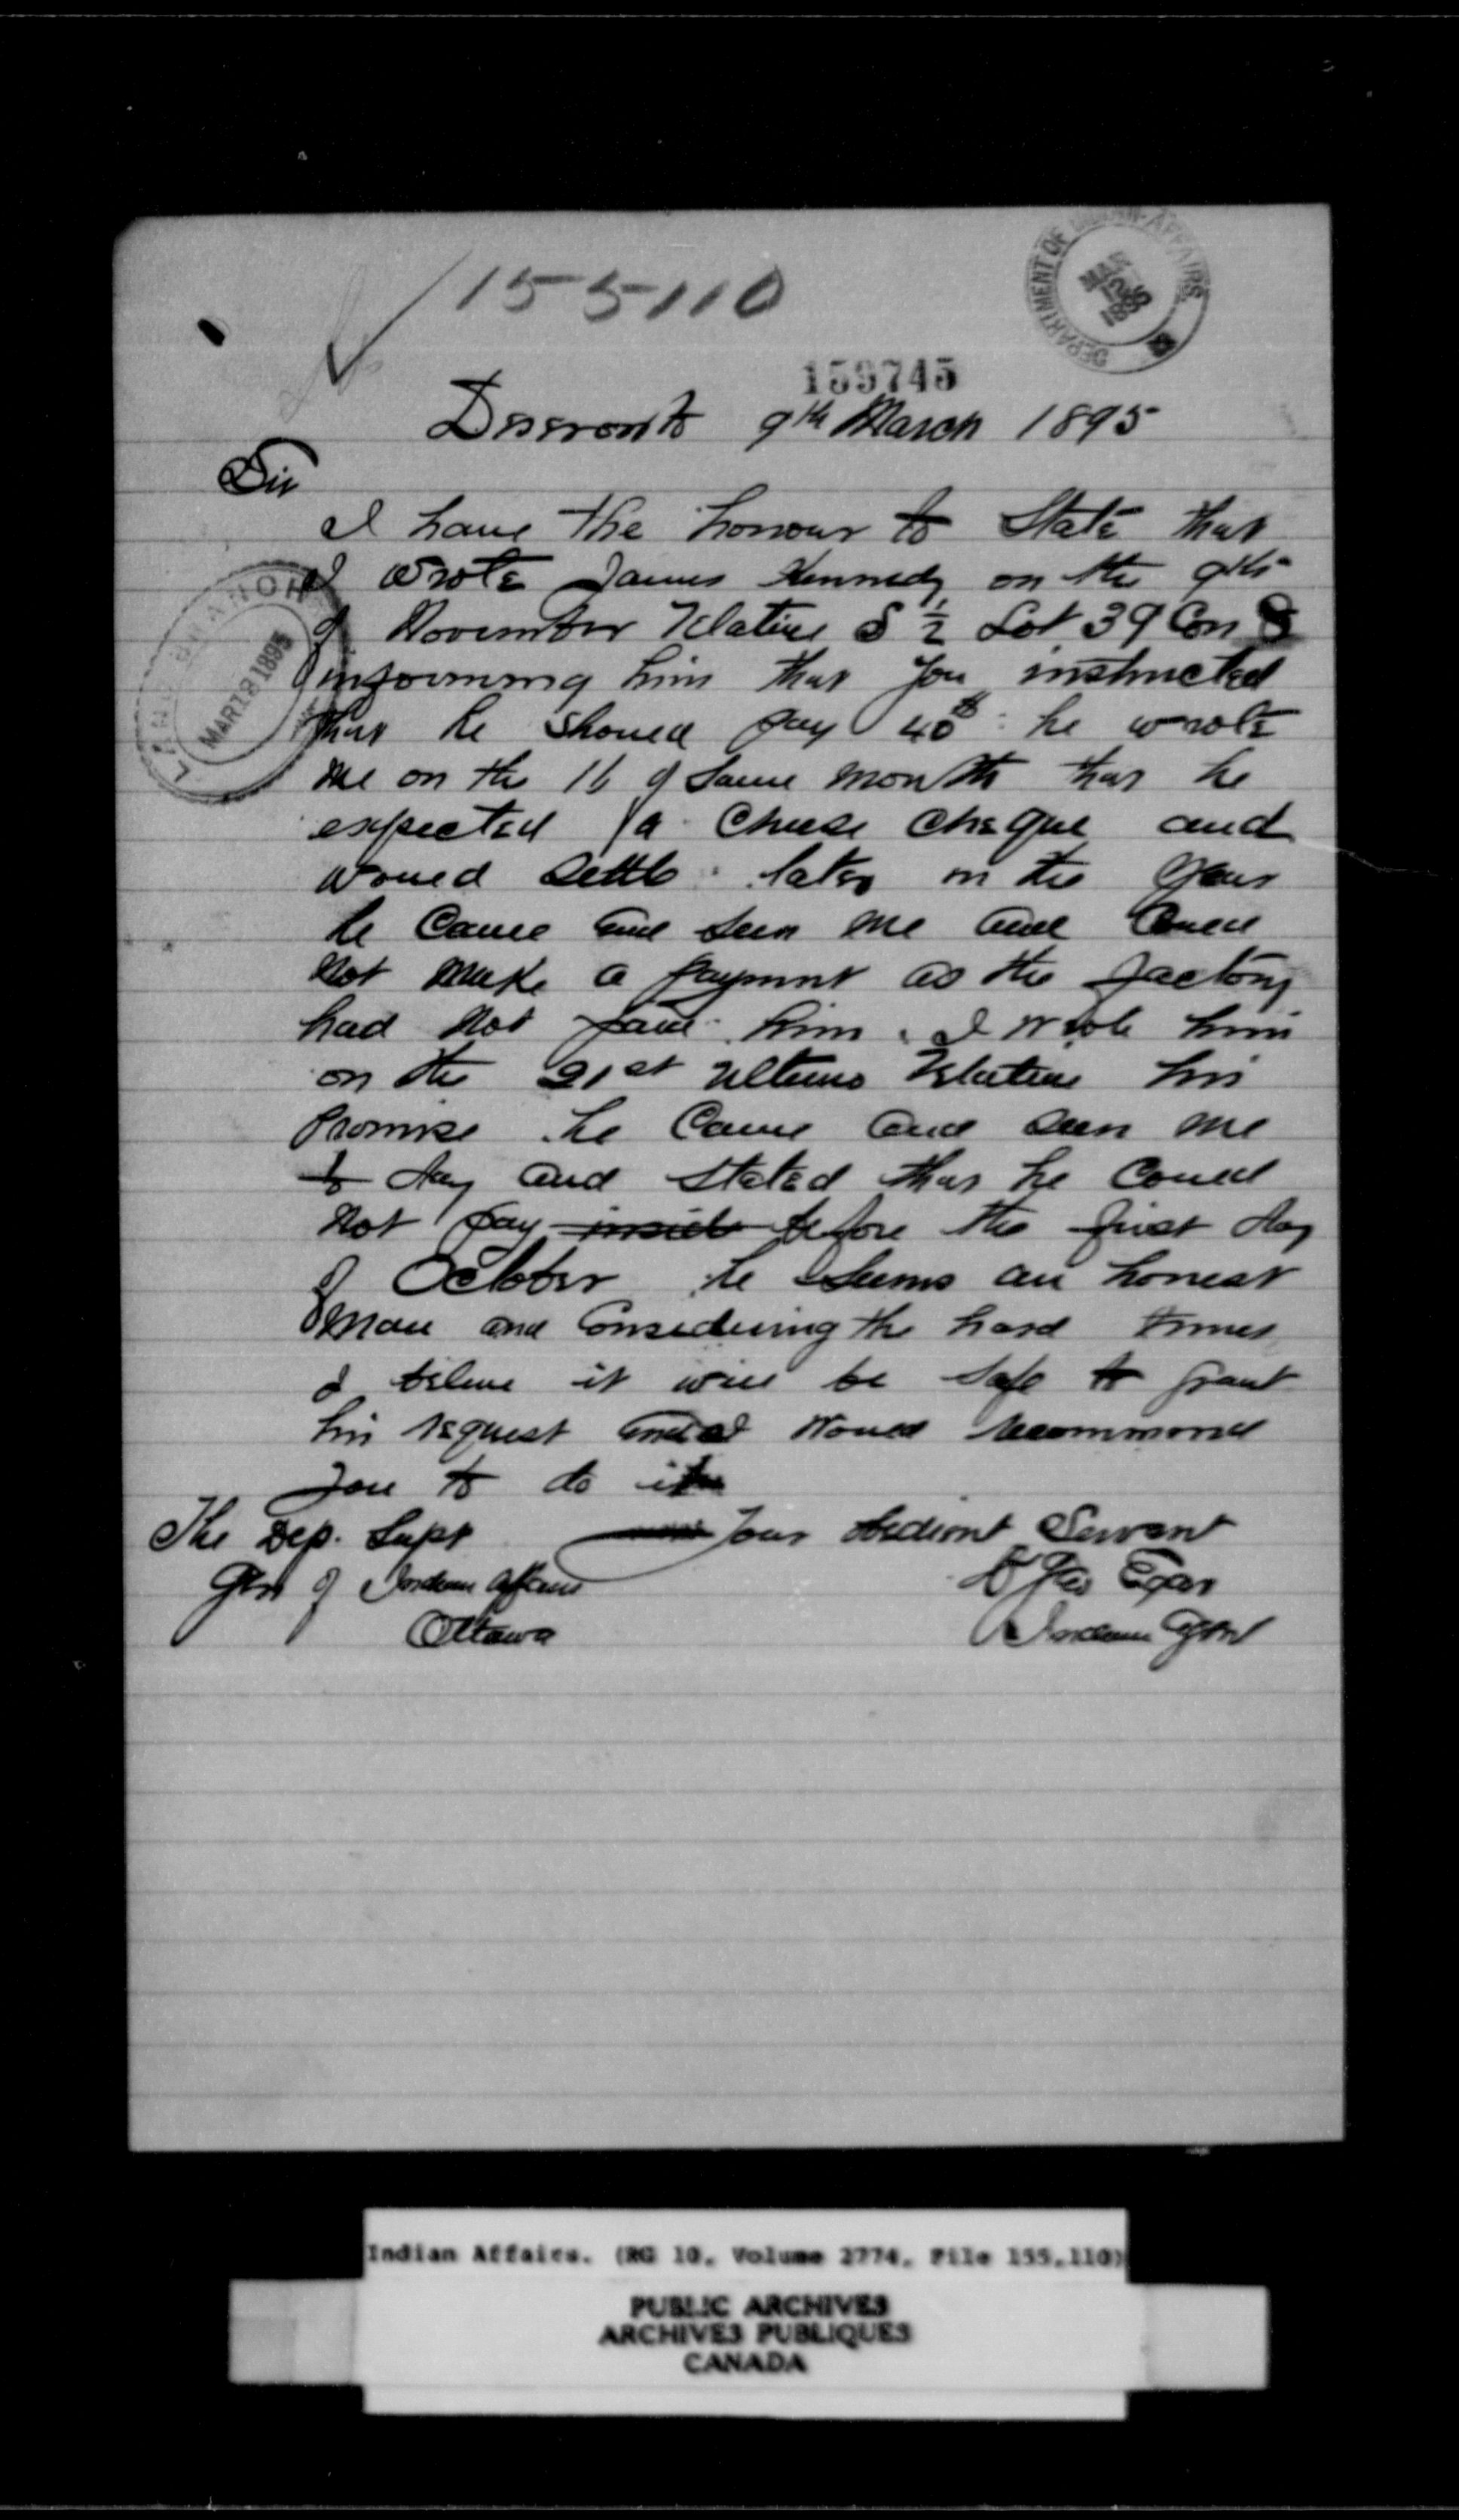 155110
DEPARTMENT OF INDIAN AFFAIRS
MAR 12 1895
159745
Deseronto 9th March 1895
Sir
I have the honour to State that
I wrote James Kennedy on the 9th
of November Relative S ½ Lot 39 Con 8
informing him that you instructed
that he should pay 40$ he wrote
me on the 16 of same month that he
expected a Cheese cheque and
would settle later in the year
he came and seen me and could
not make a payment as the factory
had not paid him. I wrote him
on the 21st ultimo Relative his
promise he came and seen me
to day and stated that he could
not pay inside before the first day
of October he seems an honest
man and Considering the hard times
I believe it will be safe to grant
his request and I would recommend
you to do it
LAND BRANCH
MAR 18 1895
Your obedient Servant
The Dep. Supt
Gen of Indian Affairs
Ottawa
Indian Agent
Indian Affairs. (RG 10, Volume 2774, File 155,110)
PUBLIC ARCHIVES
ARCHIVES PUBLIQUES
CANADA